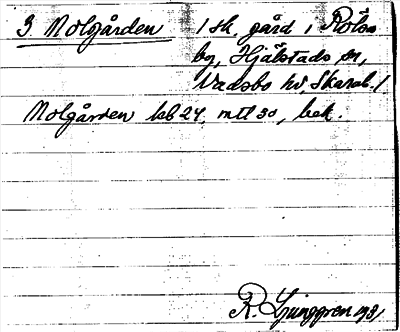 3 Nolgården / sk. gård i Rölsa
by, Hjälstads sn,
Vadsbo hd, Skarab. /
Nolgården kb 24, mtl 30, bek.
R. Ljunggren 1931